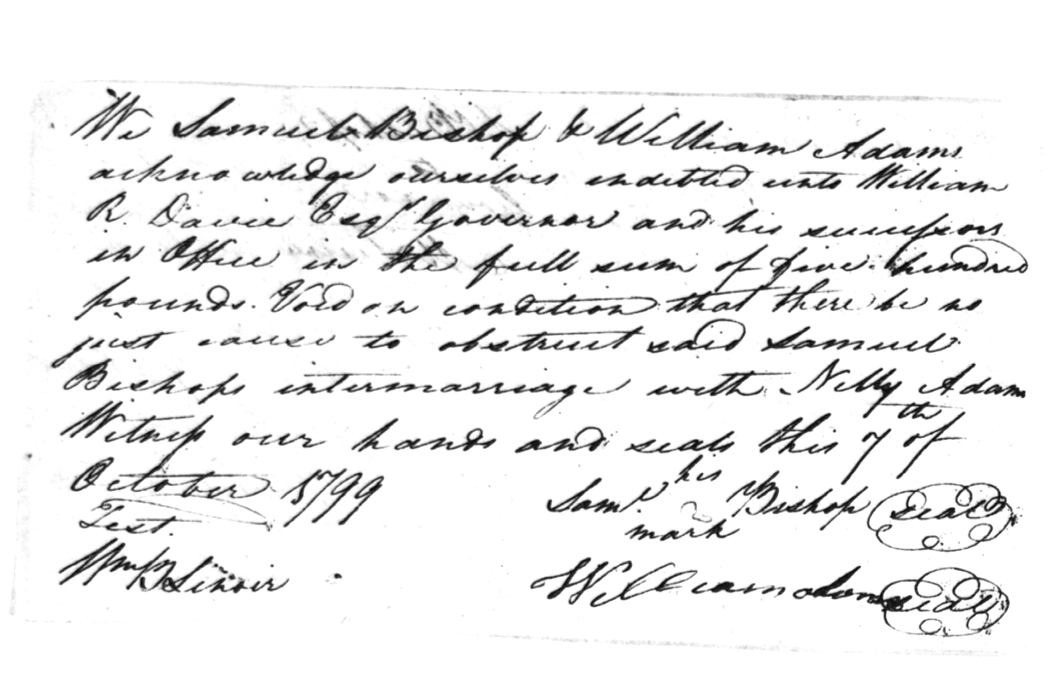 We Samuel Bishop & William Adams
acknowledge ourselves indebted unto William
R. Davie Esqr Governor and his successors
in Office in the full sum of five hundred
pounds. Void on condition that there be no
just cause to obstruct said Samuel
Bishops intermarriage with Nelly Adams
Witness our hands and seals this 7th of
October 1799
Test.
Saml. his mark Bishop seal
Wm B Lenoir
William seal